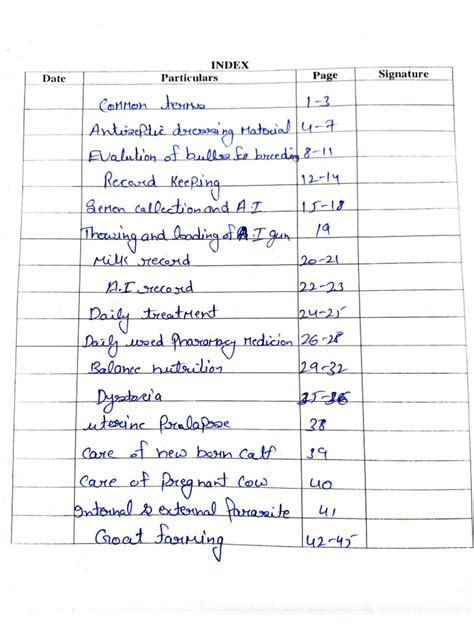 INDEX
Date Particulars Page Signature
Common terms 1-3
Antiseptic dressing Material 4-7
Evalution of bulls for breeding 8-11
Record Keeping 12-14
Semen collection and A I 15-18
Thowing and loading of A.I gun 19
Milk record 20-21
A.I record 22-23
Daily treatment 24-25
Daily used Pharamacy Medicion 26-28
Balance nutrition 29-32
Dystocia 35-36
uterine Prolapose 38
Care of new born calf 39
Care of Pregnant Cow 40
Internal & external Parasite 41
Goat farming 42-45